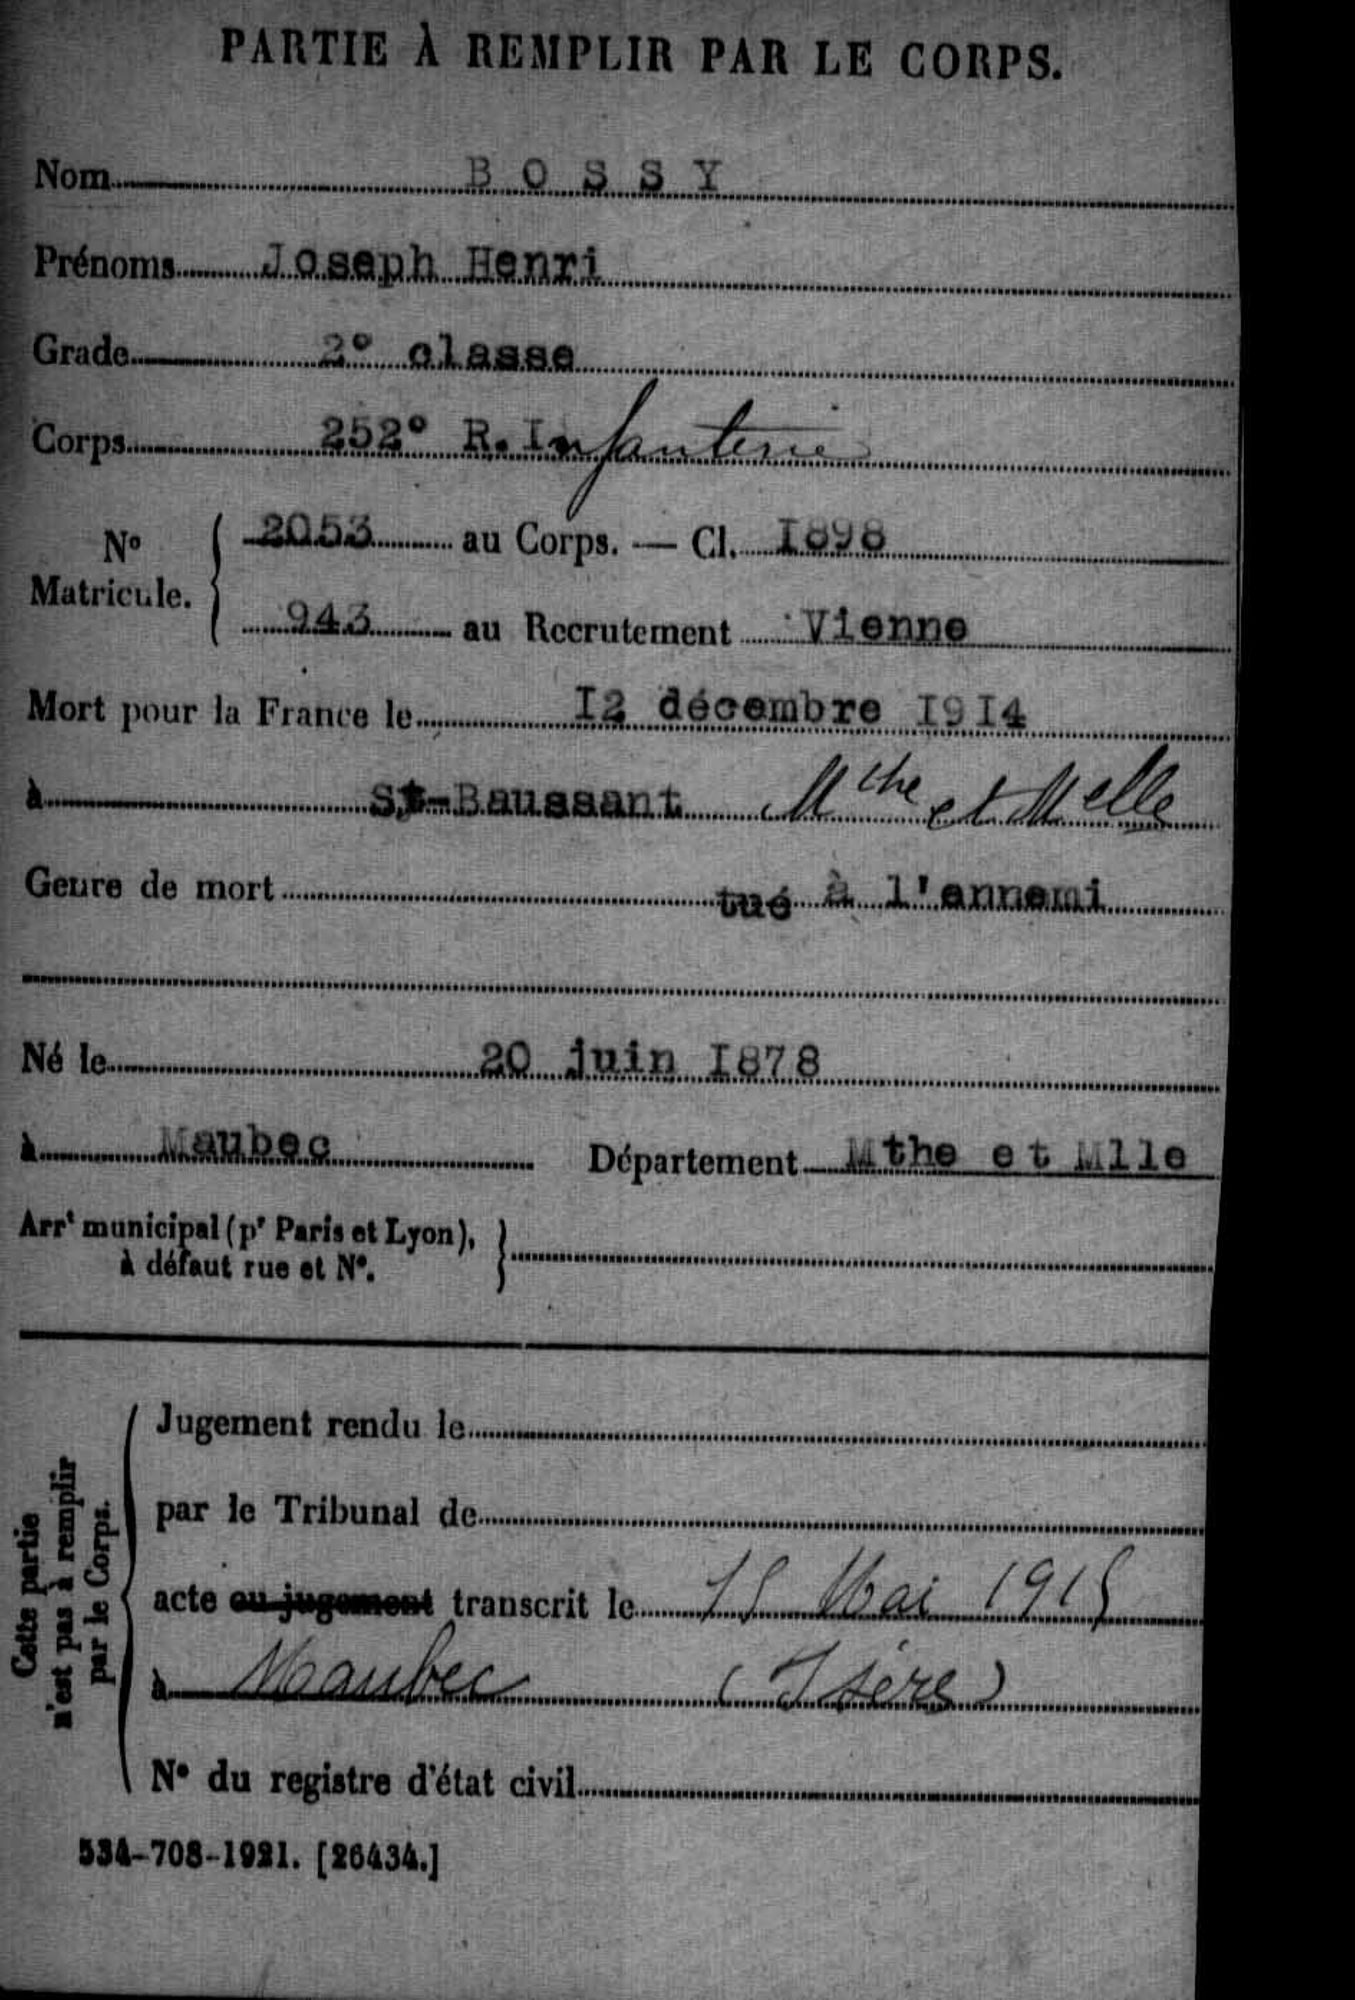 PARTIE À REMPLIR PAR LE CORPS.
Nom BOSSY
Prénoms Joseph Henri
Grade 2° classe
Corps 252° R. Infanterie
N° Matricule. 2053 au Corps. — Cl. I898
943 au Recrutement Vienne
Mort pour la France le I2 décembre I9I4
à St-Baussant Mthe et Melle
Genre de mort tué à l'ennemi
Né le 20 juin I878
à Maubec Département Mthe et Mlle
Arrt municipal (pr Paris et Lyon),
à défaut rue et N°.
Cette partie
n'est pas à remplir
par le Corps.
Jugement rendu le
par le Tribunal de
acte ou jugement transcrit le 15 Mai 1915
à Maubec (Isère)
N° du registre d'état civil
534-708-1921. [26434.]